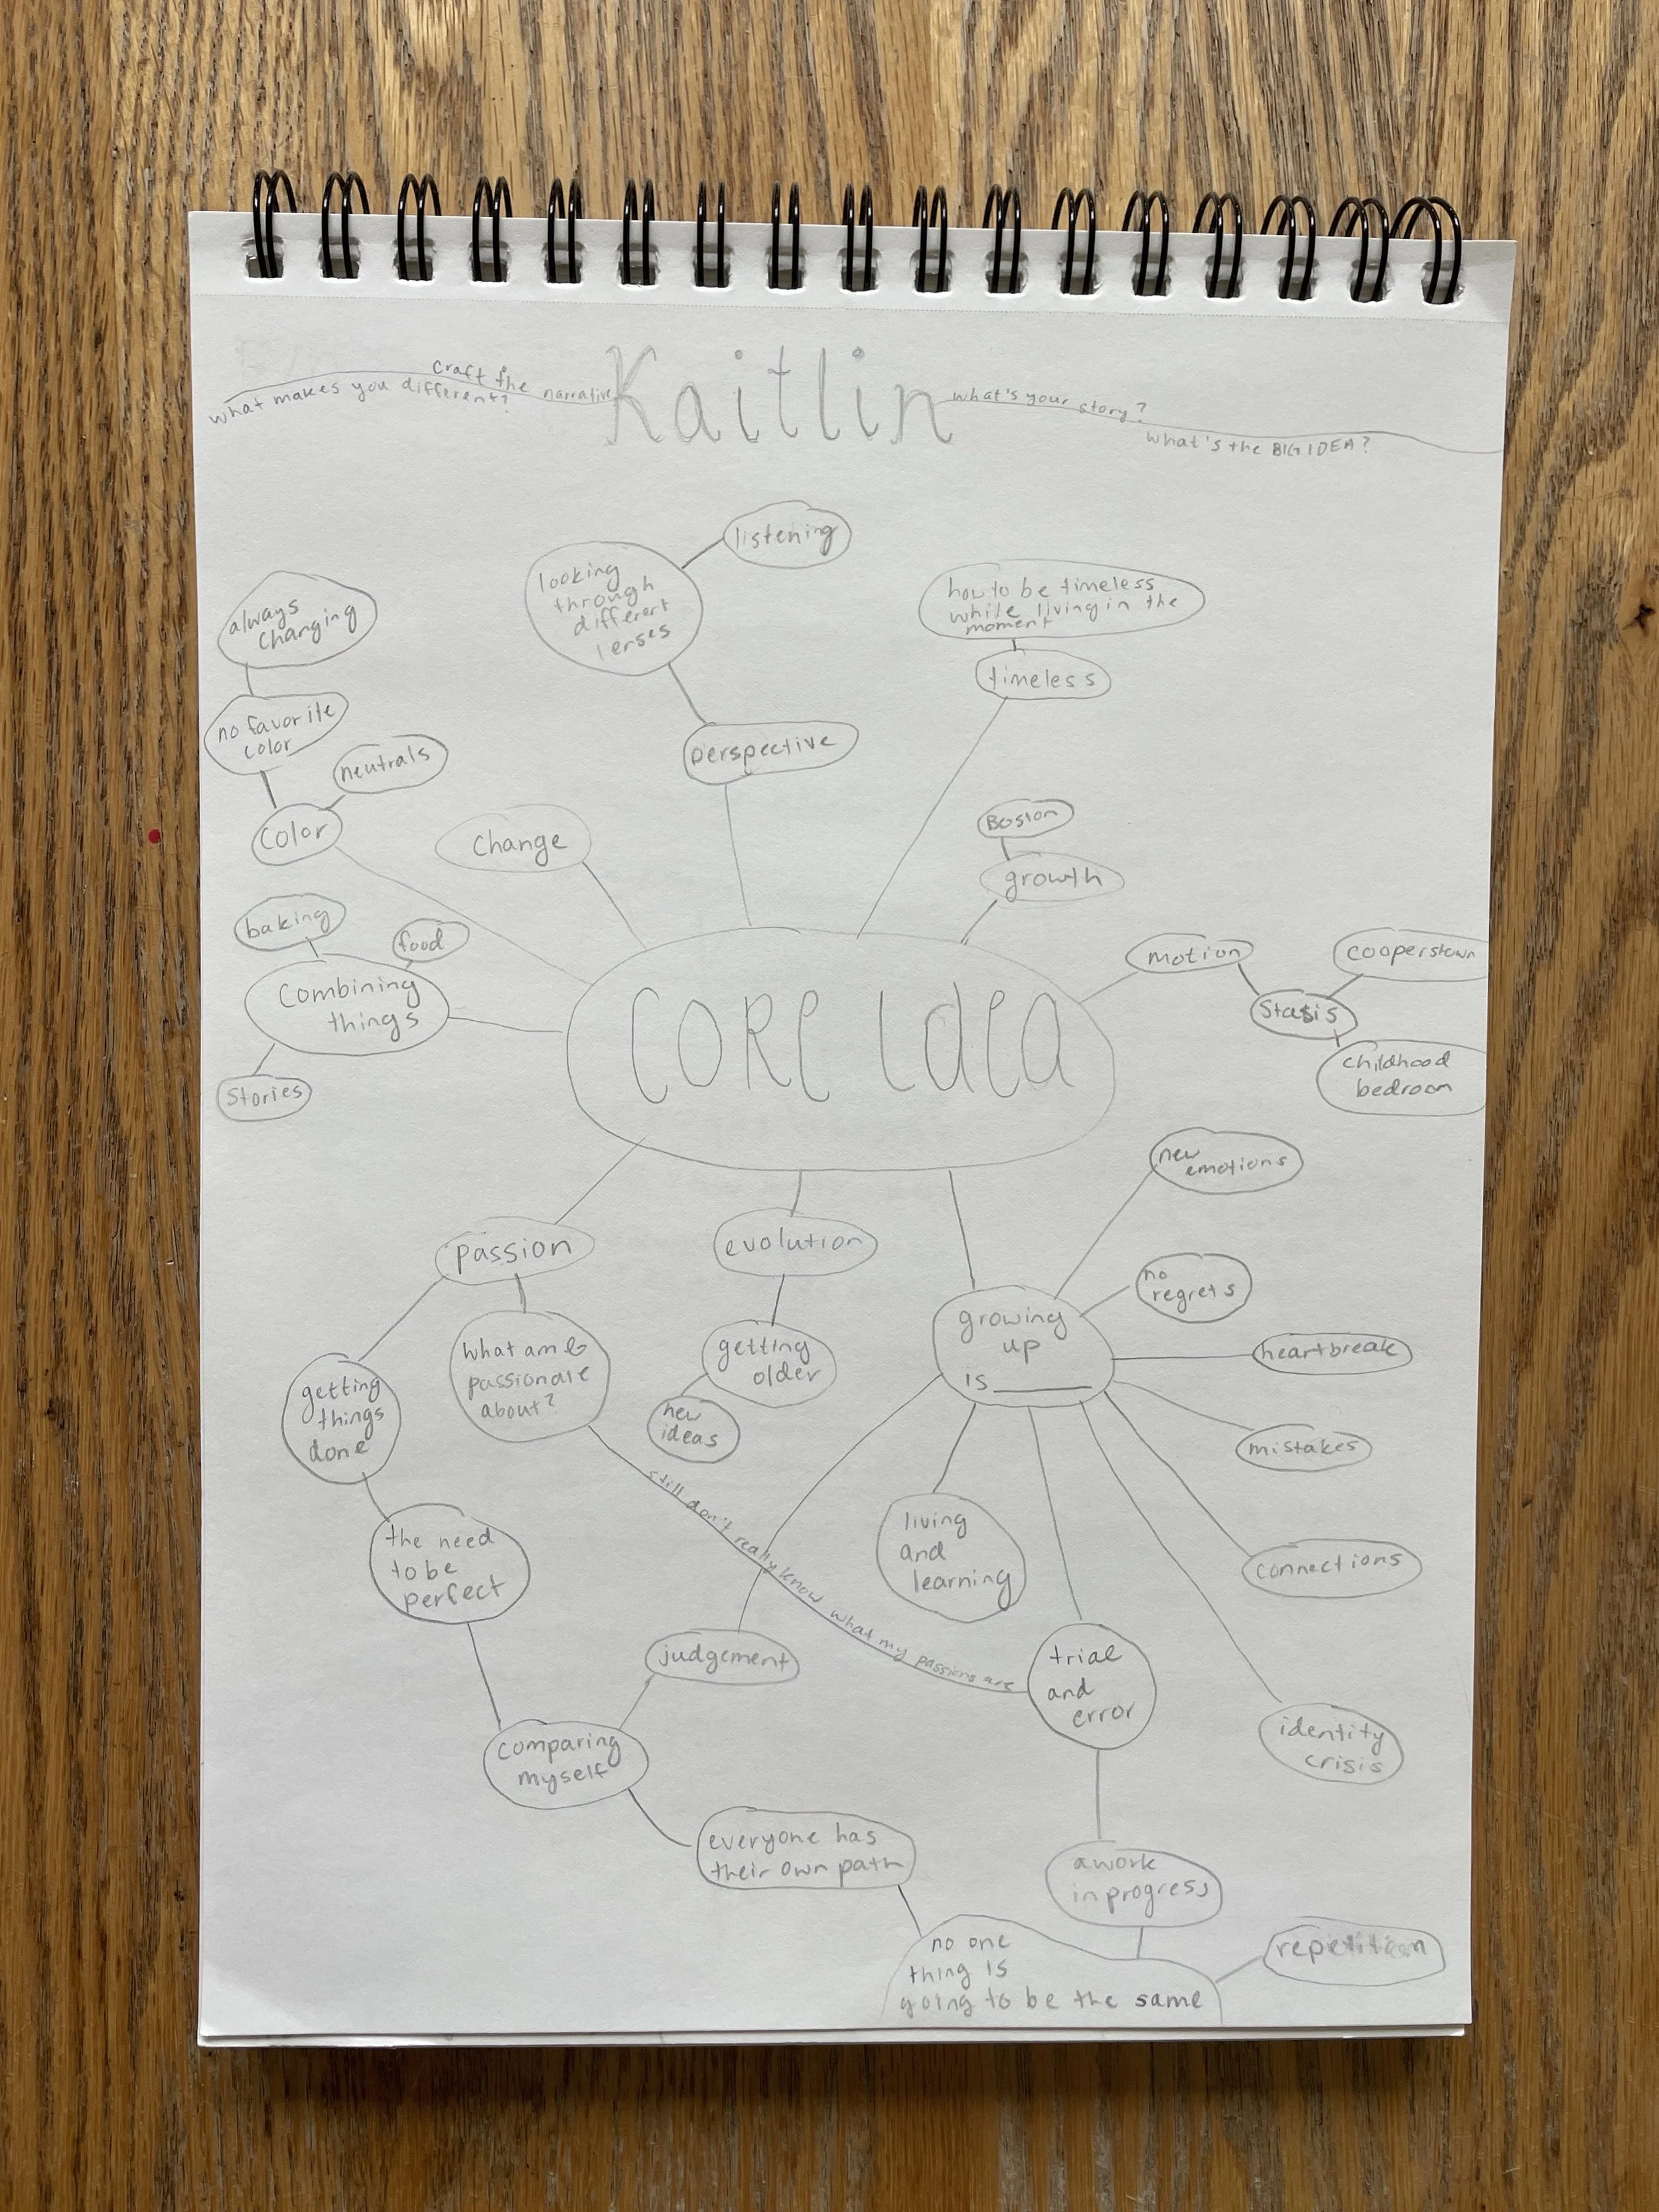 Kaitlin
craft the narrative
what makes you different?
what's your story?
what's the BIG IDEA?
listening
looking
through
different
lenses
perspective
how to be timeless
while living in the
moment
timeless
always
changing
no favorite
color
neutrals
color
change
Boston
growth
baking
food
combining
things
stories
motion
stasis
cooperstown
childhood
bedroom
CORE IDEA
new
emotions
passion
evolution
no
regrets
growing
up
is ______
heartbreak
what am I
passionate
about?
getting
older
new
ideas
getting
things
done
mistakes
still don't really know what my passions are
living
and
learning
connections
the need
to be
perfect
judgement
trial
and
error
identity
crisis
comparing
myself
everyone has
their own path
a work
in progress
no one
thing is
going to be the same
repetition